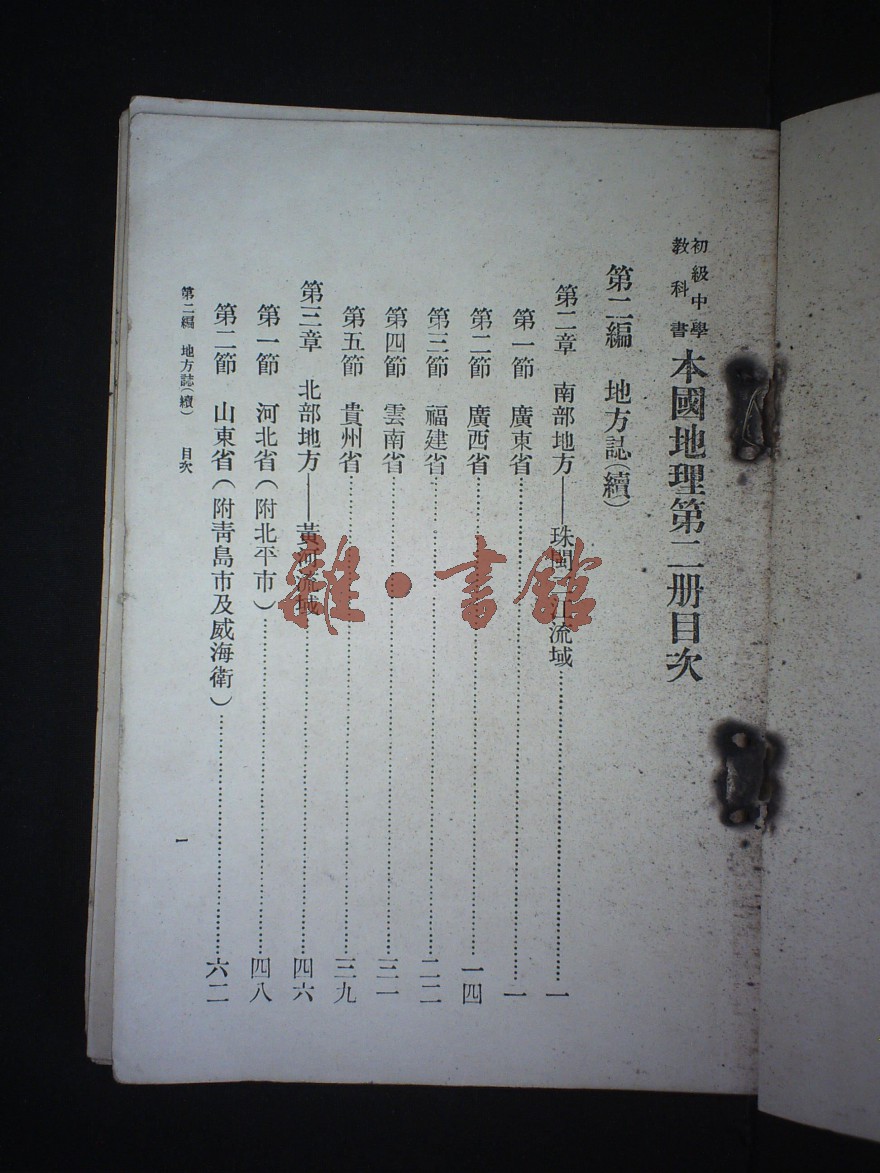 初級中學
教科書
本國地理第二册目次
第二編 地方誌(續)
第二章 南部地方——珠閩二江流域……一
第一節 廣東省……一
第二節 廣西省……一四
第三節 福建省……二二
第四節 雲南省……三一
第五節 貴州省……三九
第三章 北部地方——黃河流域……四六
第一節 河北省(附北平市)……四八
第二節 山東省(附靑島市及威海衛)……六二
第二編 地方誌(續) 目次
一
雜·書館